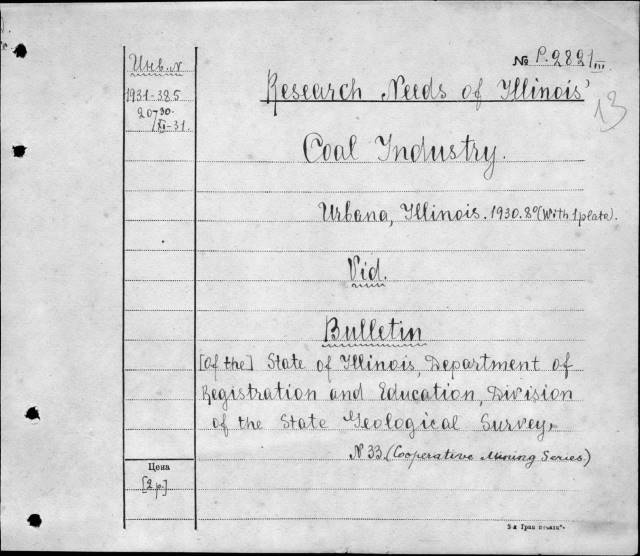 № P.2821/III
13
Инв. №
1931-385
20730
/XI-31.
Research Needs of Illinois'
Coal Industry.
Urbana, Illinois. 1930. 8°(With 1 plate).
Vid.
Bulletin
[of the] State of Illinois, Department of
Registration and Education, Division
of the State Geological Survey,
N 33. (Cooperative Mining Series)
Цена
[2 р.]